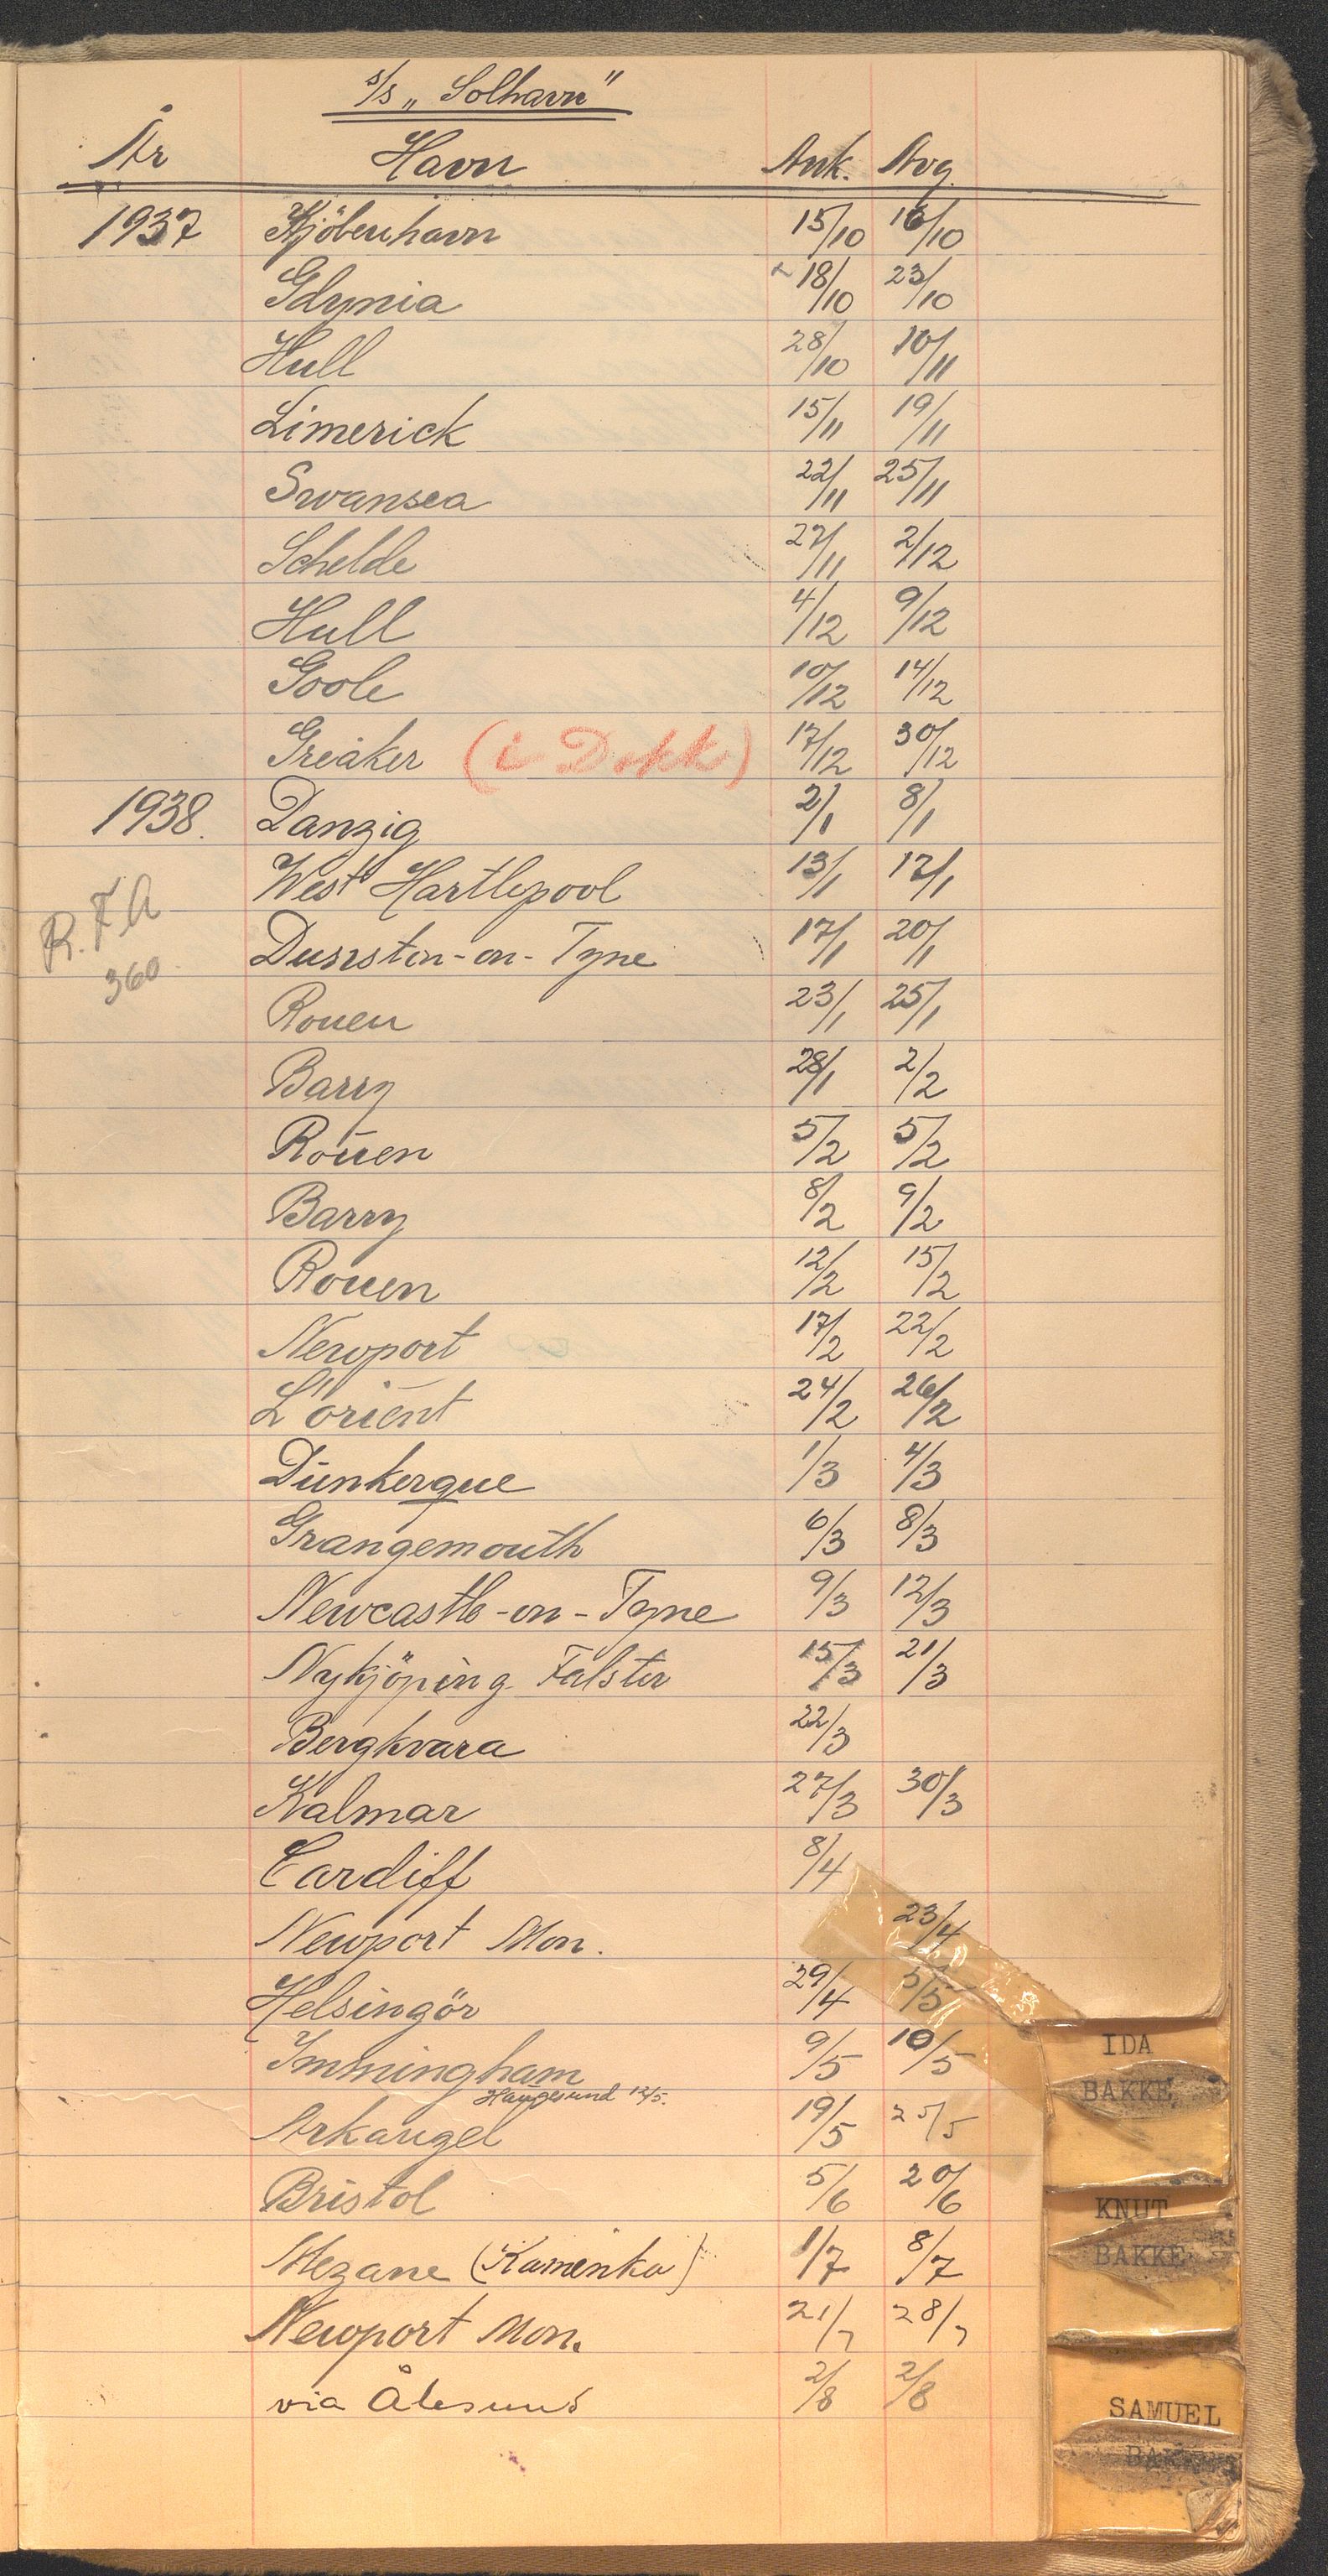 s/s „Solhavn"
År Havn Ank. Avg.
1937 Kjöbenhavn 15/10 16/10
Gdynia 18/10 23/10
Hull 28/10 10/11
Limerick 15/11 19/11
Swansea 22/11 25/11
Schelde 27/11 2/12
Hull 4/12 9/12
Goole 10/12 14/12
Greåker (i Dokk) 17/12 30/12
1938. Danzig 2/1 8/1
West Hartlepool 13/1 17/1
R.F.A Dunston-on-Tyne 17/1 20/1
360 Rouen 23/1 25/1
Barry 28/1 2/2
Rouen 5/2 5/2
Barry 8/2 9/2
Rouen 12/2 15/2
Newport 17/2 22/2
L'orient 24/2 26/2
Dunkerque 1/3 4/3
Grangemouth 6/3 8/3
Newcastle-on-Tyne 9/3 12/3
Nykjöping Falster 15/3 21/3
Bergkvara 22/3
Kalmar 27/3 30/3
Cardiff 8/4
Newport Mon. 23/4
Helsingör 29/4 5/5
Immingham 9/5 10/5
Haugesund 12/5.
Arkangel 19/5 25/5
Bristol 5/6 20/6
Mezane (Kamenka) 1/7 8/7
Newport Mon. 21/7 28/7
via Ålesund 2/8 2/8
IDA
BAKKE
KNUT
BAKKE
SAMUEL
BAKKE